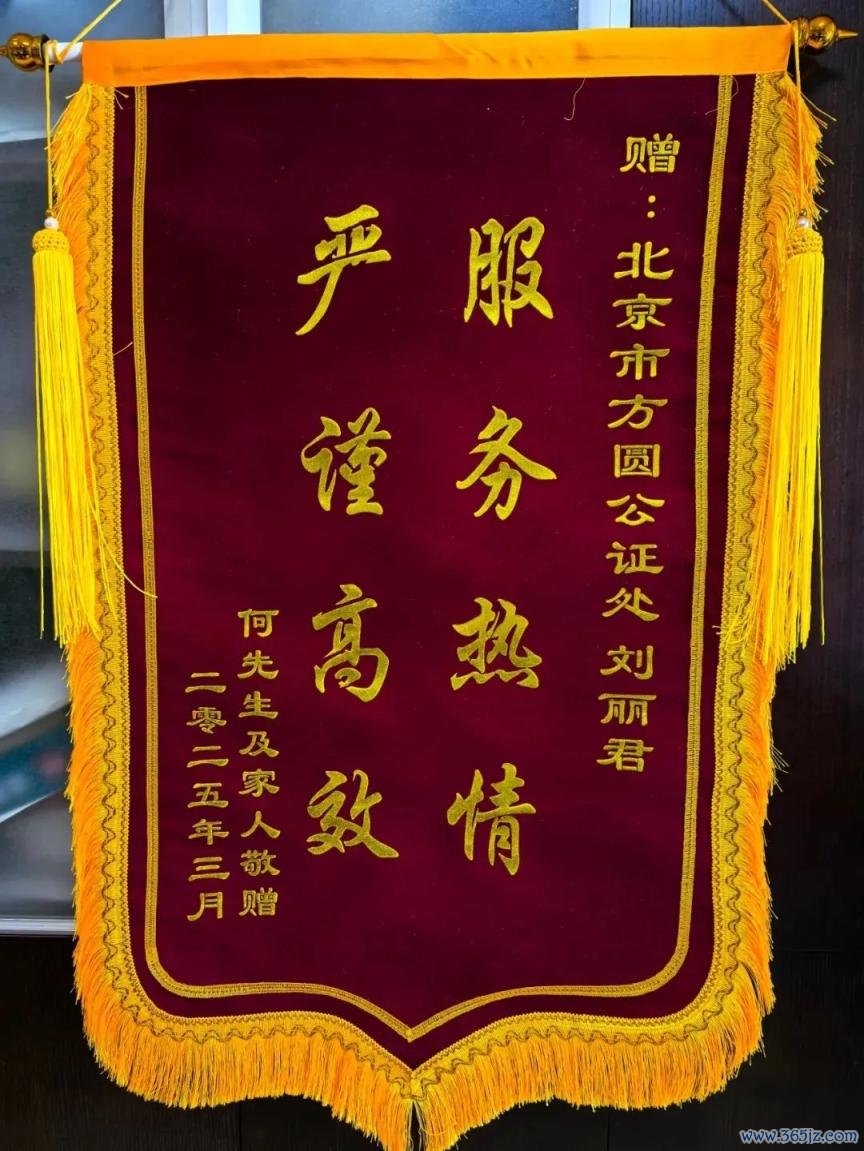 赠：北京市方圆公证处 刘丽君
服务热情
严谨高效
何先生及家人敬赠
二零二五年三月
www.365jz.com